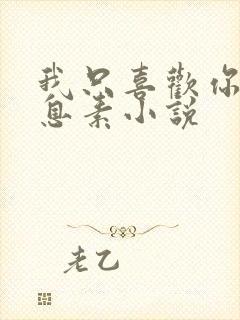 我只喜歡你
息素小說
老乙